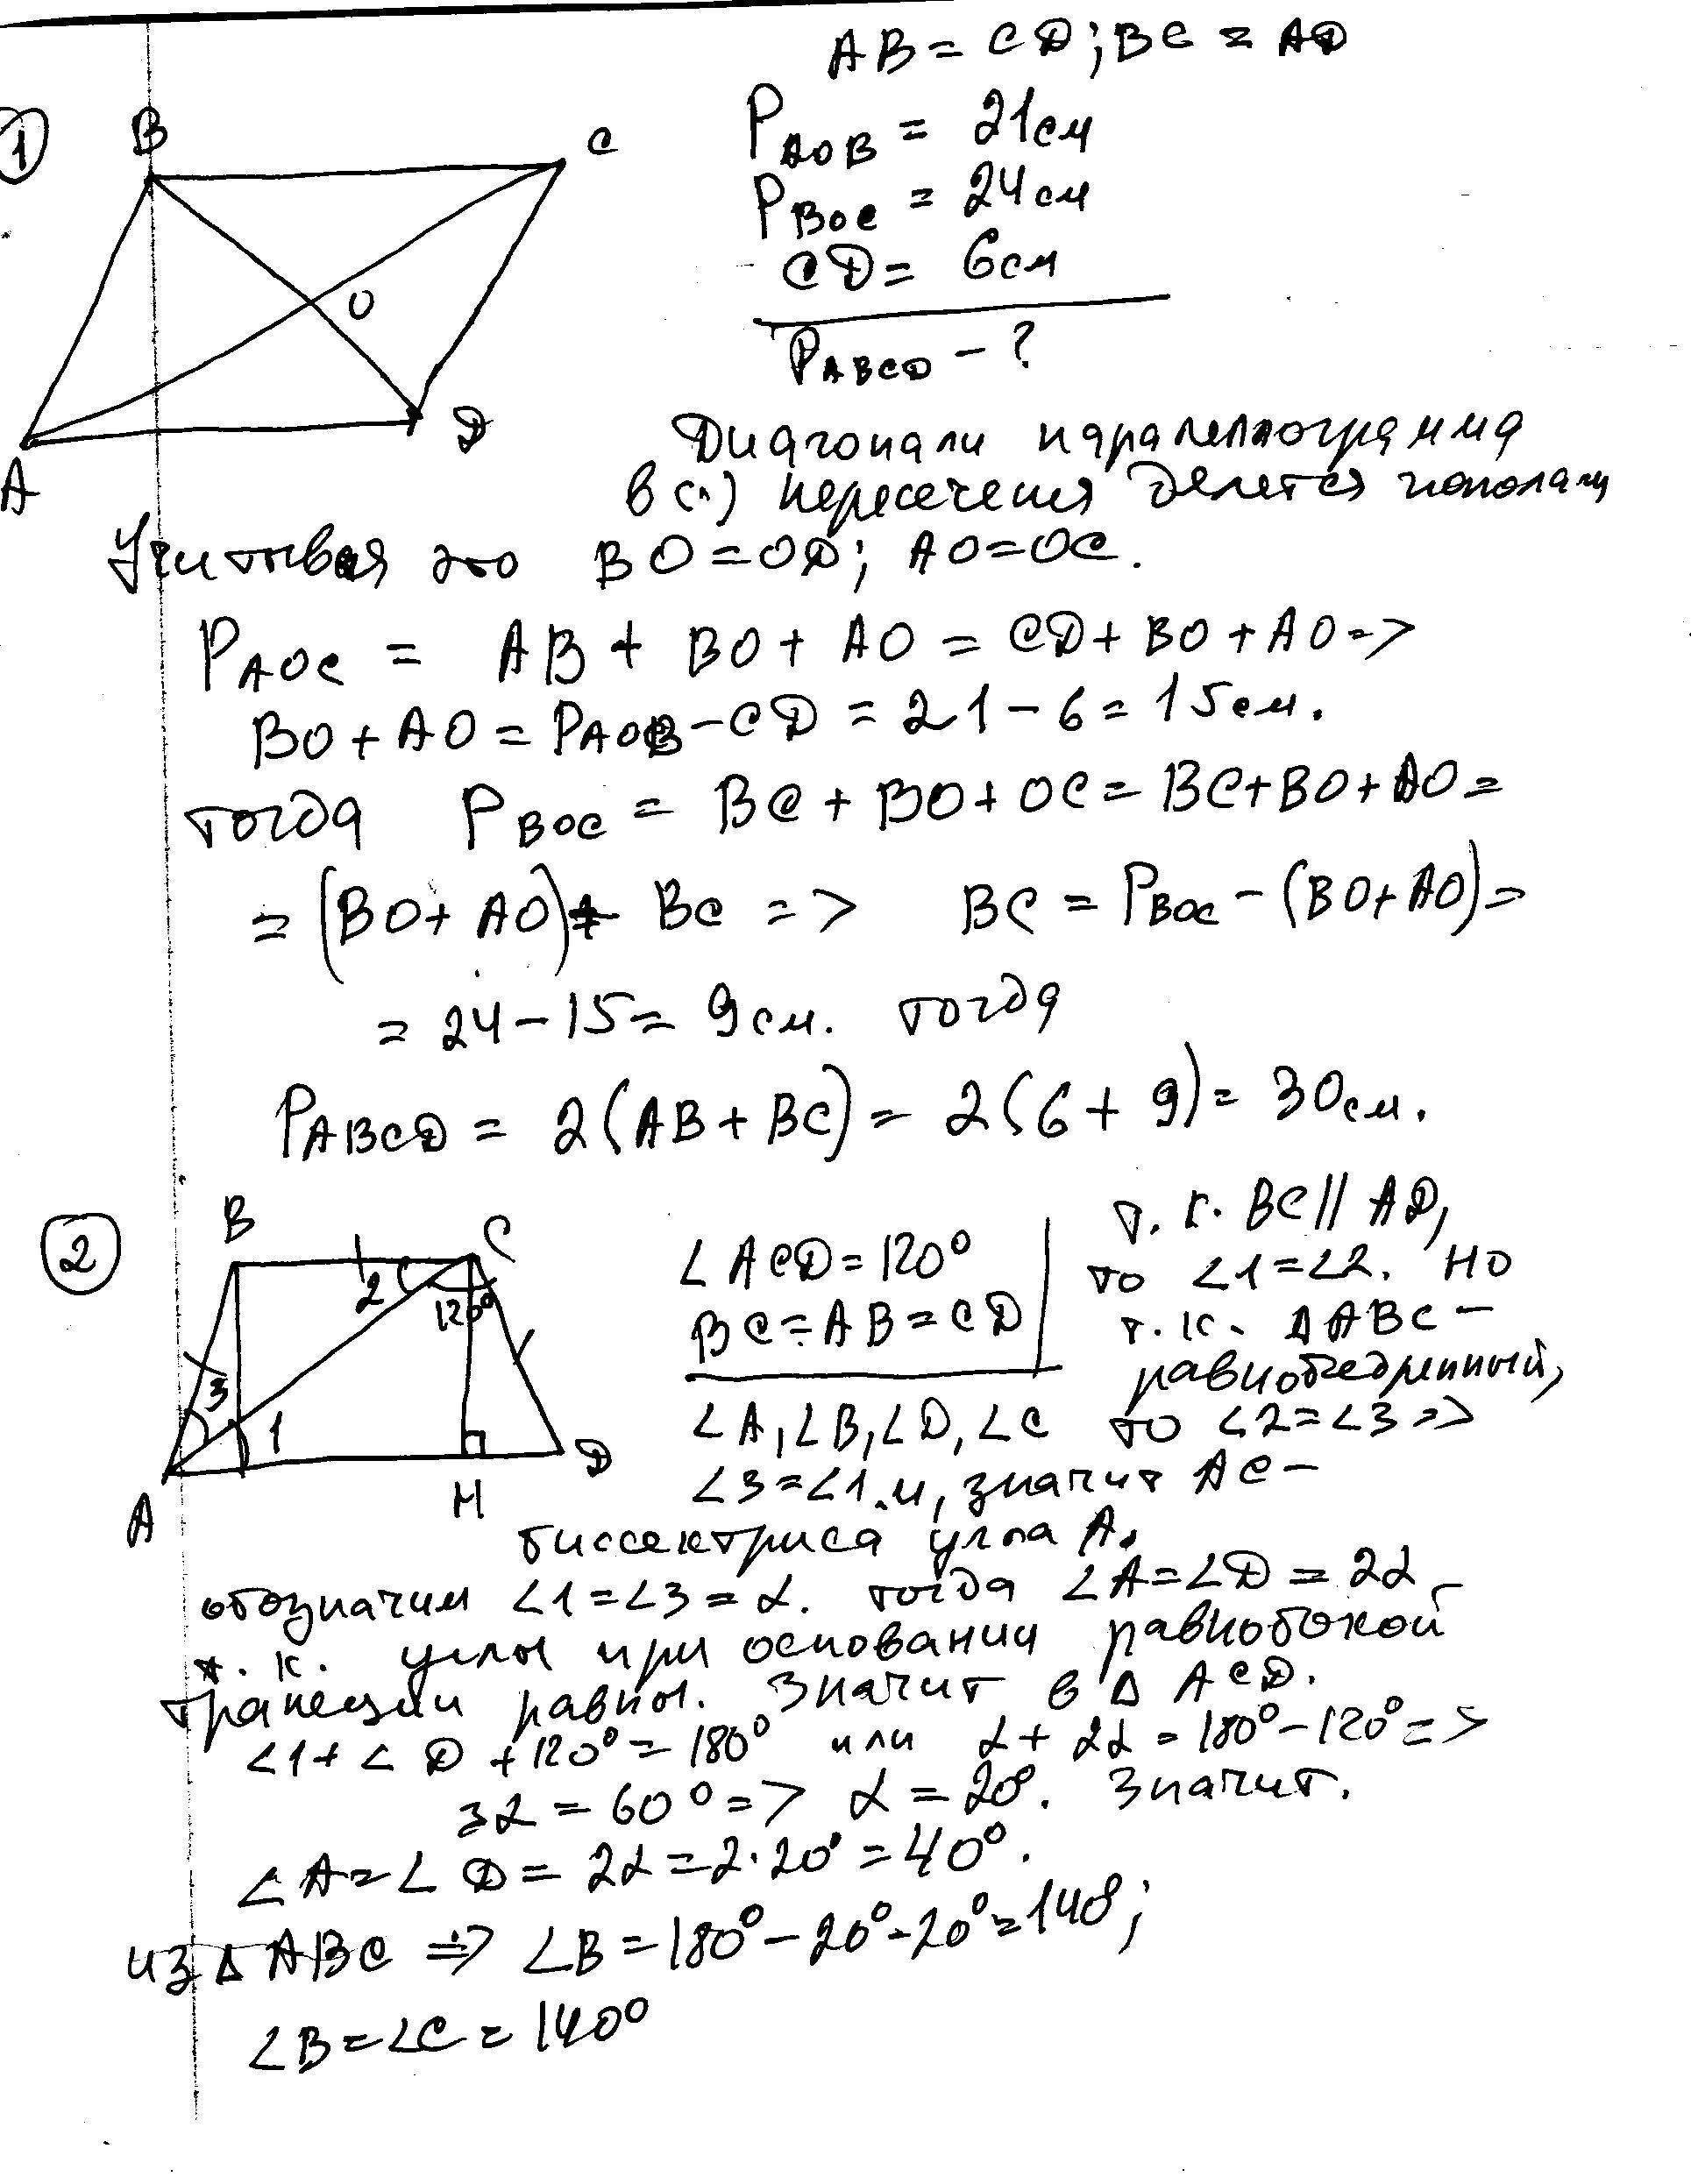 1
AB = CD; BC = AD
B
C
O
A
D
P AOB = 21см
P BOC = 24см
CD = 6см
P ABCD - ?
Диагонали паралеллограмма
в (·) пересечения делется пополам
Учитывая это BO = OD; AO = OC.
P AOC = AB + BO + AO = CD + BO + AO =>
BO + AO = P AOB - CD = 21 - 6 = 15см.
тогда P BOC = BC + BO + OC = BC + BO + AO =
= (BO + AO) + BC => BC = P BOC - (BO + AO) =
= 24 - 15 = 9см. тогда
P ABCD = 2(AB + BC) = 2(6 + 9) = 30см.
2
B
C
2
120°
3
1
A
H
D
∠ACD = 120°
BC = AB = CD
∠A, ∠B, ∠D, ∠C
т.к. BC || AD,
то ∠1 = ∠2. но
т.к. △ABC -
равнобедренный,
то ∠2 = ∠3 =>
∠3 = ∠1 и, значит AC -
биссектриса угла A.
обозначим ∠1 = ∠3 = α. тогда ∠A = ∠D = 2α
т.к. углы при основании равнобокой
трапеции равны. Значит в △ ACD.
∠1 + ∠D + 120° = 180° или α + 2α = 180° - 120° =>
3α = 60° => α = 20°. Значит.
∠A = ∠D = 2α = 2·20° = 40°.
из △ ABC => ∠B = 180° - 20° - 20° = 140°;
∠B = ∠C = 140°